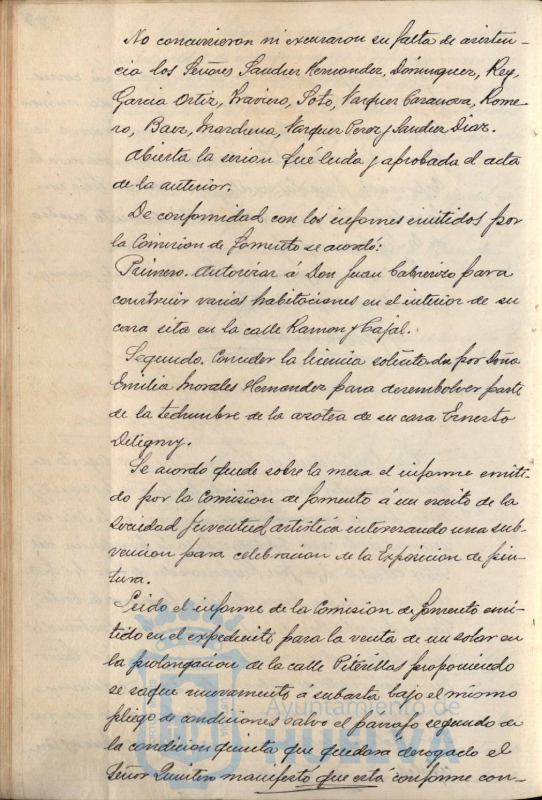 No concurrieron ni excusaron su falta de asisten-
cia los Señores Sanchez Hernandez, Dominguez, Rey,
Garcia Ortiz, Traviero, Soto, Vazquez Casanova, Rome-
ro, Baez, Mardena, Vazquez Perez y Sanchez Diaz.
Abierta la sesion fué leida y aprobada el acta
de la anterior.
De conformidad con los informes emitidos por
la Comision de Fomento se acordó:
Primero. Autorizar á Don Juan Cabrerizo para
construir varias habitaciones en el interior de su
casa sita en la calle Ramon y Cajal.
Segundo. Conceder la licencia solicitada por Doña
Emilia Morales Hernandez para desembolver parte
de la techumbre de la azotea de su casa Ernesto
Deligny.
Se acordó quede sobre la mesa el informe emiti-
do por la Comision de Fomento á un escrito de la
Sociedad Juventud artística interesando una sub-
vencion para celebracion de la Exposicion de pin-
tura.
Leido el informe de la Comision de Fomento emi-
tido en el expediente para la venta de un solar en
la prolongacion de la calle Piterillas proponiendo
se saque nuevamente á subasta bajo el mismo
pliego de condiciones salvo el parrafo segundo de
la condicion quinta que quedará derogado el
Señor Quintero manifestó que está conforme con-
Ayuntamiento de
HUELVA